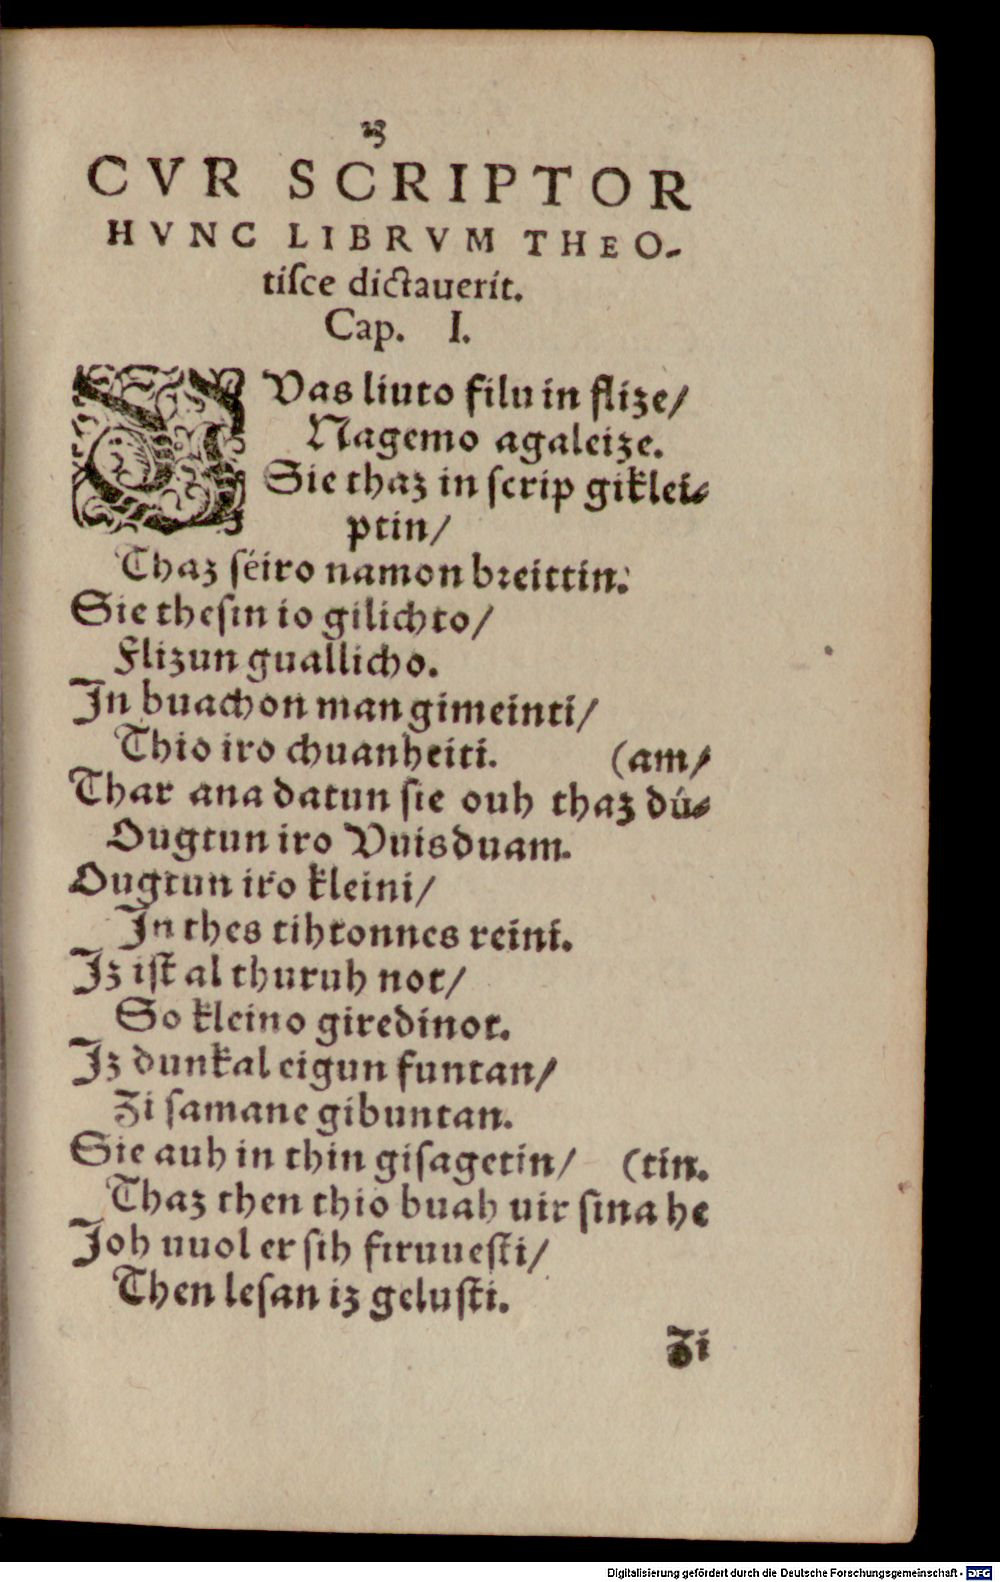 13
CVR SCRIPTOR
HVNC LIBRVM THEO-
tiſce dictauerit.
Cap. I.
Vvas liuto filu in flize/
Nagemo agaleize.
Sie thaz in ſcrip giklei⸗
ptin/
Thaz ſéiro namon breittin.
Sie theſin io gilichto/
Flizun guallicho.
In buachon man gimeinti/
Thio iro chuanheiti. (am/
Thar ana datun ſie ouh thaz dú⸗
Ougtun iro Vuisduam.
Ougtun iro kleini/
In thes tihtonnes reini.
Iz iſt al thuruh not/
So kleino giredinot.
Iz dunkal eigun funtan/
Zi ſamane gibuntan.
Sie auh in thin giſagetin/ (tin.
Thaz then thio buah uir ſina he
Joh uuol er ſih firuueſti/
Then leſan iz geluſti.
Zi
Digitalisierung gefördert durch die Deutsche Forschungsgemeinschaft - DFG